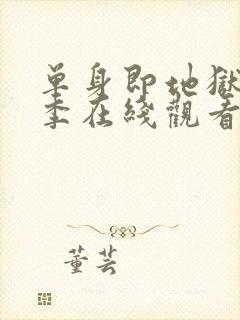 单身即地獄
季在綫觀看
董芸